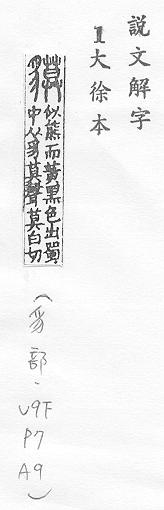 說文解字
1大徐本
似熊而黃黑色出蜀
中从豸莫聲莫白切
(豸部.
V9F
P7
A9)